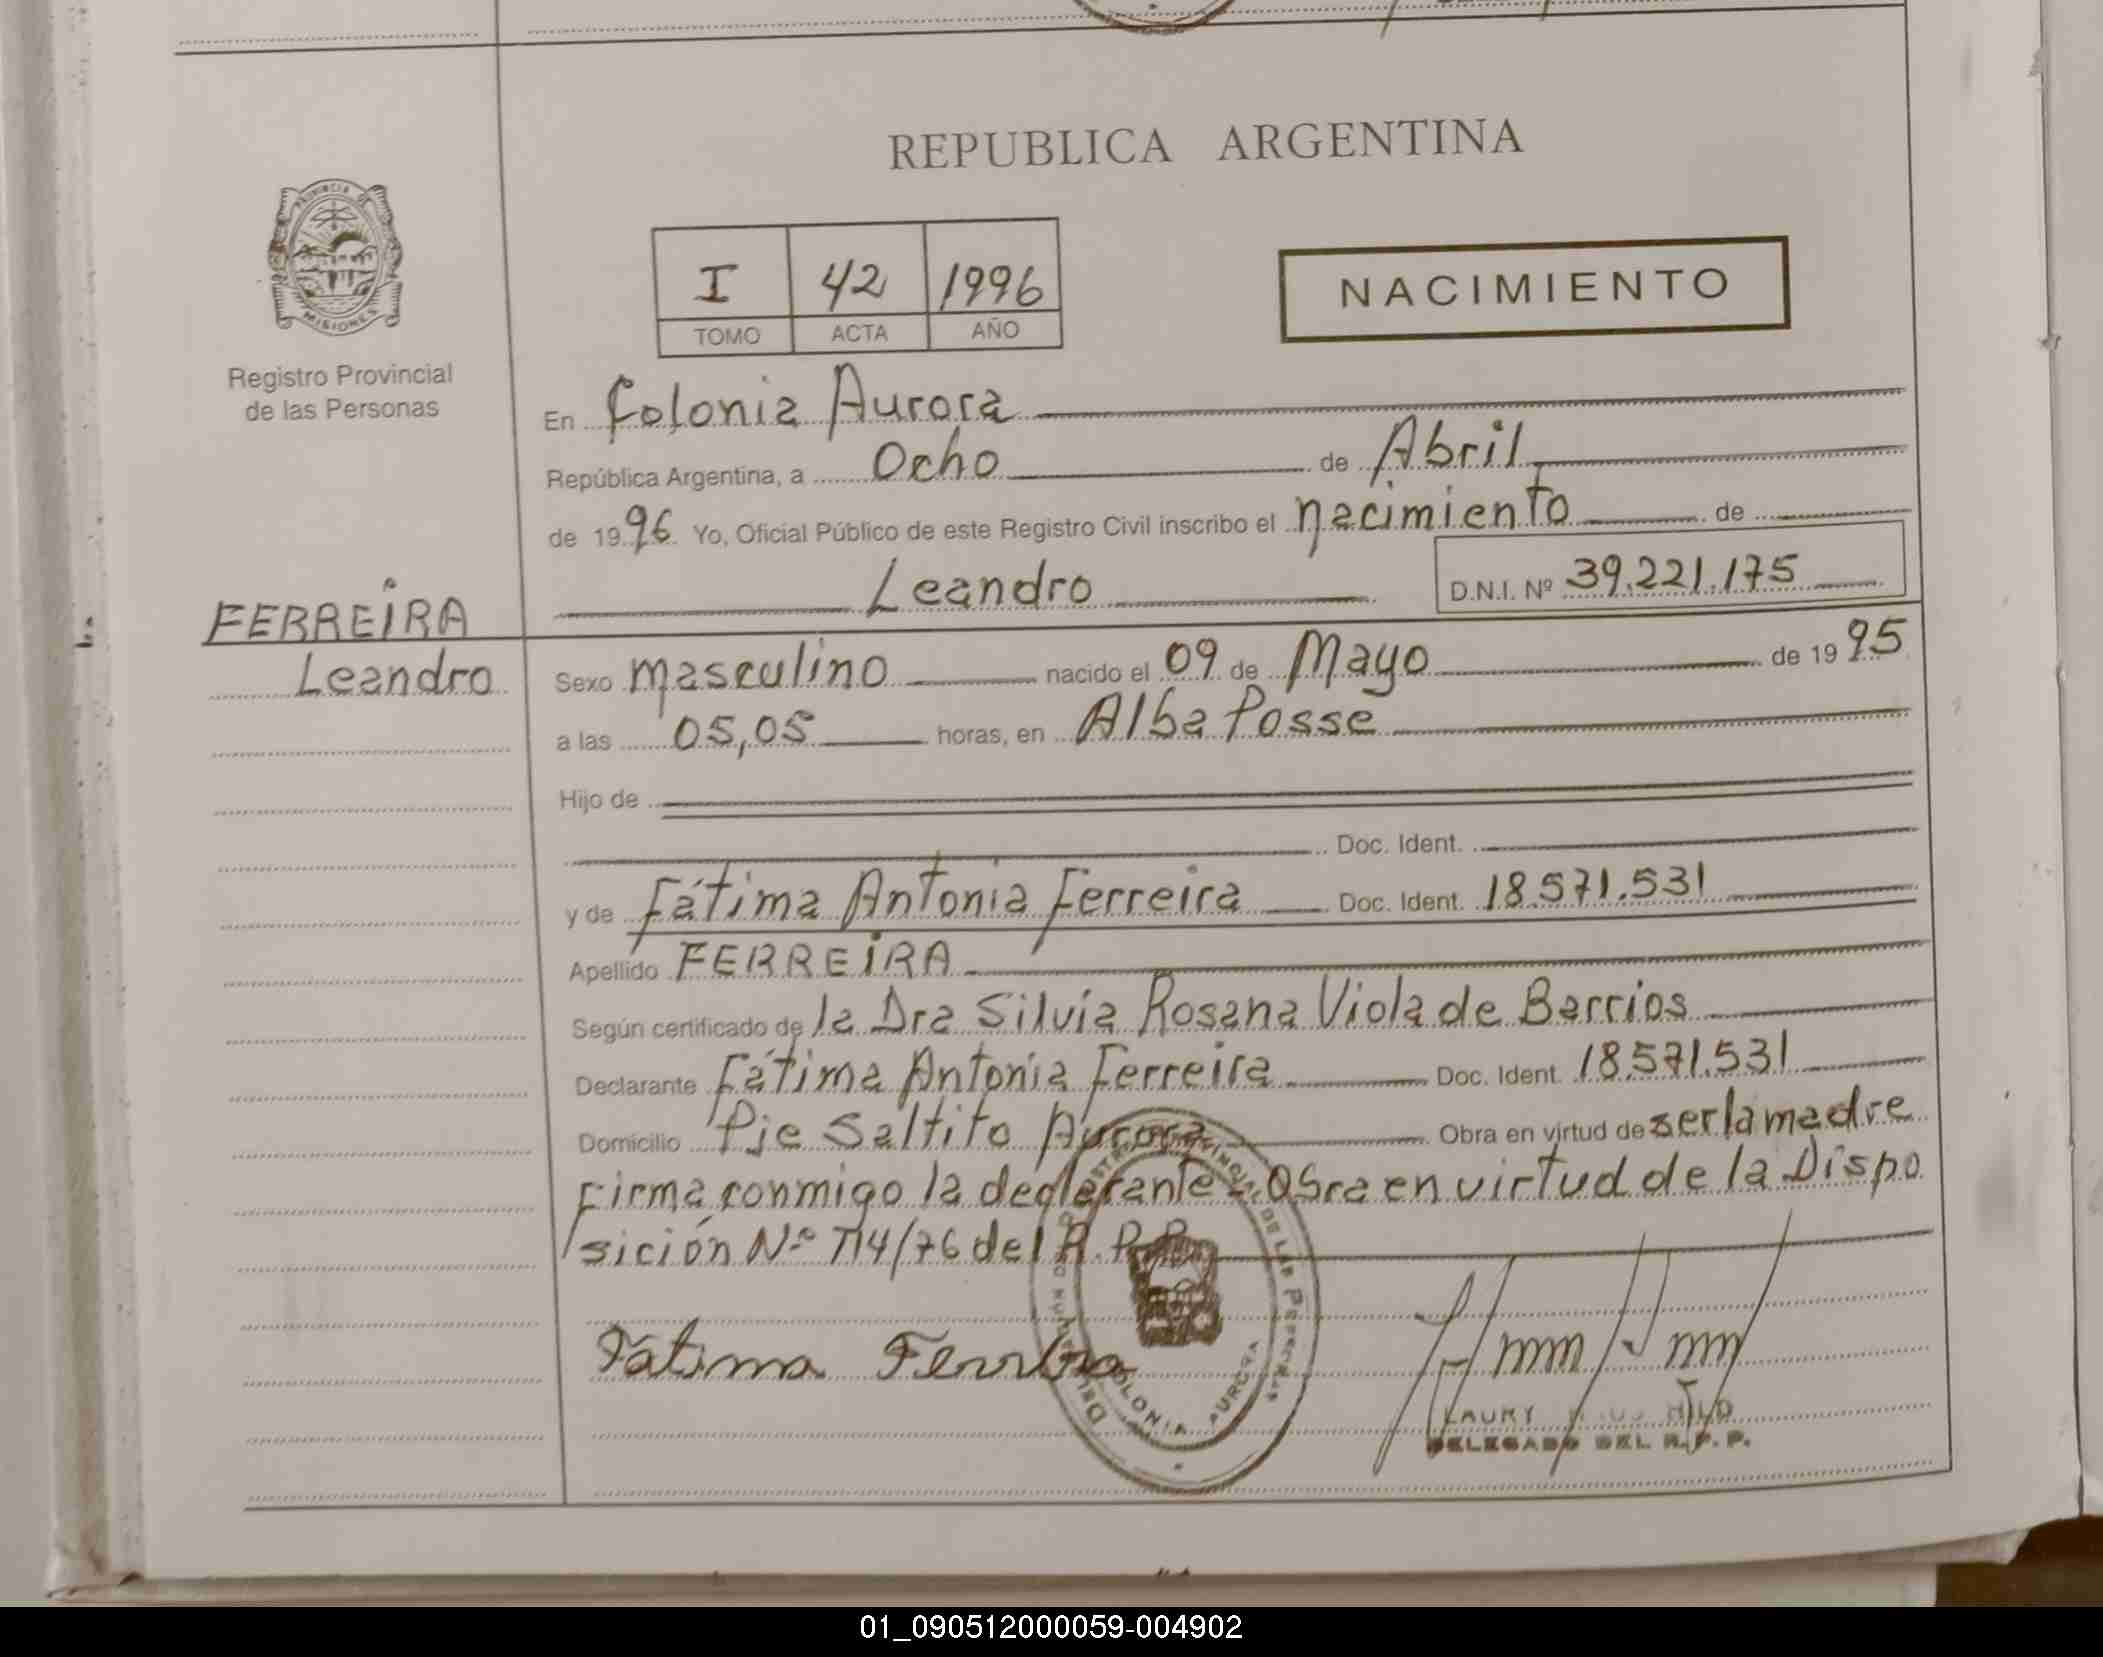 REPUBLICA ARGENTINA
PROVINCIA DE
MISIONES
Registro Provincial
de las Personas
I 42 1996
TOMO ACTA AÑO
NACIMIENTO
En Colonia Aurora
República Argentina, a Ocho de Abril
de 1996 Yo, Oficial Público de este Registro Civil inscribo el nacimiento de
Leandro D.N.I. Nº 39.221.175
FERREIRA
Leandro
Sexo masculino nacido el 09 de Mayo de 1995
a las 05,05 horas, en Alba Posse
Hijo de
Doc. Ident.
y de Fátima Antonia Ferreira Doc. Ident. 18.571.531
Apellido FERREIRA
Según certificado de la Dra Silvia Rosana Viola de Barrios
Declarante Fátima Antonia Ferreira Doc. Ident. 18.571.531
Domicilio Pje Saltito Aurora Obra en virtud de ser la madre
Firma conmigo la declarante - Obra en virtud de la Dispo
sición Nº 714/76 del R.P.P.
Fátima Ferreira
COLONIA AURORA
LAURY
DELEGADO DEL R.P.P.
01_090512000059-004902